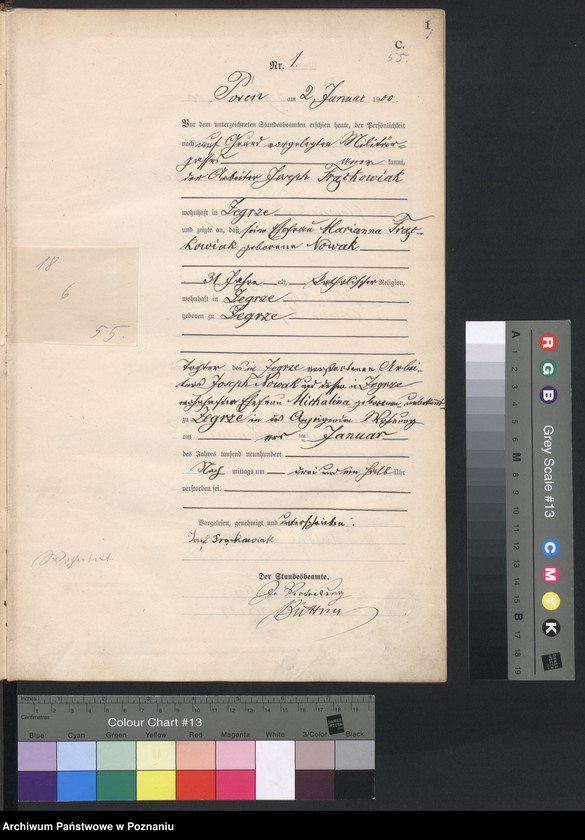 1
C.
55.
Nr. 1.
Posen am 2 Januar 1900.
Vor dem unterzeichneten Standesbeamten erschien heute, der Persönlichkeit
nach auf Grund vorgelegten Militär-
passes kannt,
der Arbeiter Joseph Frąckowiak
wohnhaft in Zegrze
und zeigte an, daß seine Ehefrau Marianna Frąc-
kowiak geborene Nowak
31 Jahre alt, katholischer Religion,
wohnhaft in Zegrze
geboren zu Zegrze
Tochter des in Zegrze verstorbenen Arbei-
ters Joseph Nowak und dessen in Zegrze
Ehefrau Michalina geborenen unbekannt
zu Zegrze in des Anzeigenden Wohnung
am ersten Januar
des Jahres tausend neunhundert
Nach mittags um drei und ein halb Uhr
verstorben sei.
Vorgelesen, genehmigt und unterschrieben:
Josef Frąckowiak
Der Standesbeamte.
In Vertretung
Büttner
18
6
55.
Inches
Centimetres
Colour Chart #13
Blue Cyan Green Yellow Red Magenta White 3/Color Black
Grey Scale #13
R G B C M Y K
A 1 2 3 4 5 6 M 8 9 10 11 12 13 14 15 B 17 18 19
Archiwum Państwowe w Poznaniu